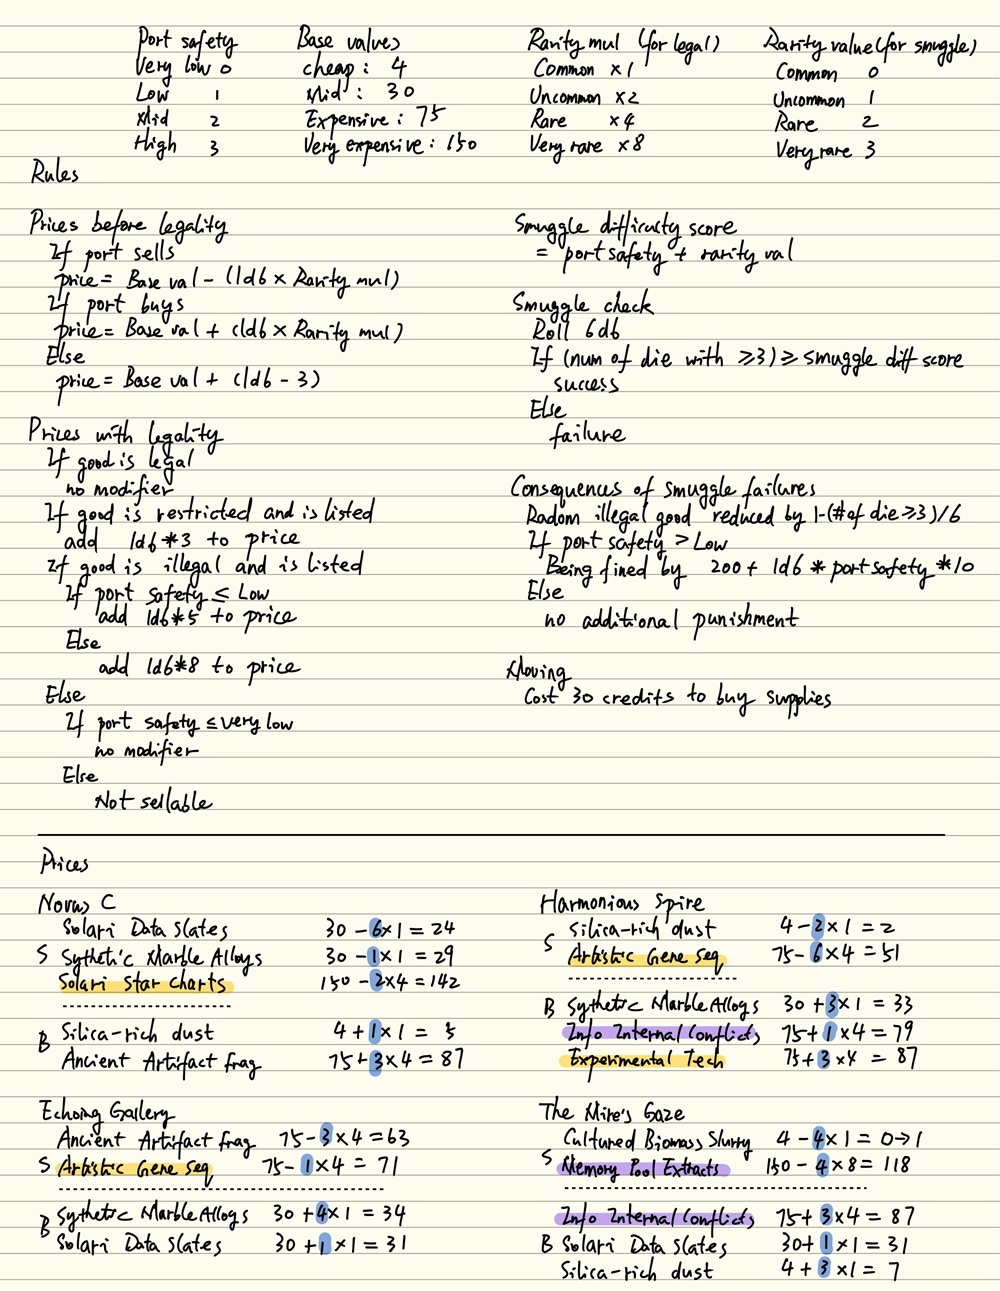 Port safety
Very low 0
Low 1
Mid 2
High 3
Base values
cheap : 4
Mid : 30
Expensive : 75
Very expensive : 150
Rarity mul (for legal)
Common ×1
Uncommon ×2
Rare ×4
Very rare ×8
Rarity value (for smuggle)
Common 0
Uncommon 1
Rare 2
Very rare 3
Rules
Prices before legality
If port sells
price = Base val - (1d6 × Rarity mul)
If port buys
price = Base val + (1d6 × Rarity mul)
Else
price = Base val + (1d6 - 3)
Prices with legality
If good is legal
no modifier
If good is restricted and is listed
add 1d6*3 to price
If good is illegal and is listed
If port safety ≤ Low
add 1d6*5 to price
Else
add 1d6*8 to price
Else
If port safety ≤ very low
no modifier
Else
Not sellable
Smuggle difficulty score
= port safety + rarity val
Smuggle check
Roll 6d6
If (num of die with ≥3) ≥ smuggle diff score
success
Else
failure
Consequences of smuggle failures
Radom illegal good reduced by 1-(# of die ≥3)/6
If port safety > Low
Being fined by 200 + 1d6 * port safety * 10
Else
no additional punishment
Moving
Cost 30 credits to buy supplies
Prices
Novus C
Solari Data Slates 30 - 6×1 = 24
S Sythetic Marble Alloys 30 - 1×1 = 29
Solari Star Charts 150 - 2×4 = 142
B Silica-rich dust 4 + 1×1 = 5
Ancient Artifact frag 75 + 3×4 = 87
Harmonious Spire
Silica-rich dust 4 - 2×1 = 2
S Artistic Gene Seq 75 - 6×4 = 51
B Sythetic Marble Alloys 30 + 3×1 = 33
Info Internal Conflicts 75 + 1×4 = 79
Experimental Tech 75 + 3×4 = 87
Echoing Gallery
Ancient Artifact frag 75 - 3×4 = 63
S Artistic Gene Seq 75 - 1×4 = 71
B Sythetic Marble Alloys 30 + 4×1 = 34
Solari Data Slates 30 + 1×1 = 31
The Mire's Gaze
Cultured Biomass Slurry 4 - 4×1 = 0→1
S Memory Pool Extracts 150 - 4×8 = 118
Info Internal Conflicts 75 + 3×4 = 87
B Solari Data Slates 30 + 1×1 = 31
Silica-rich dust 4 + 3×1 = 7